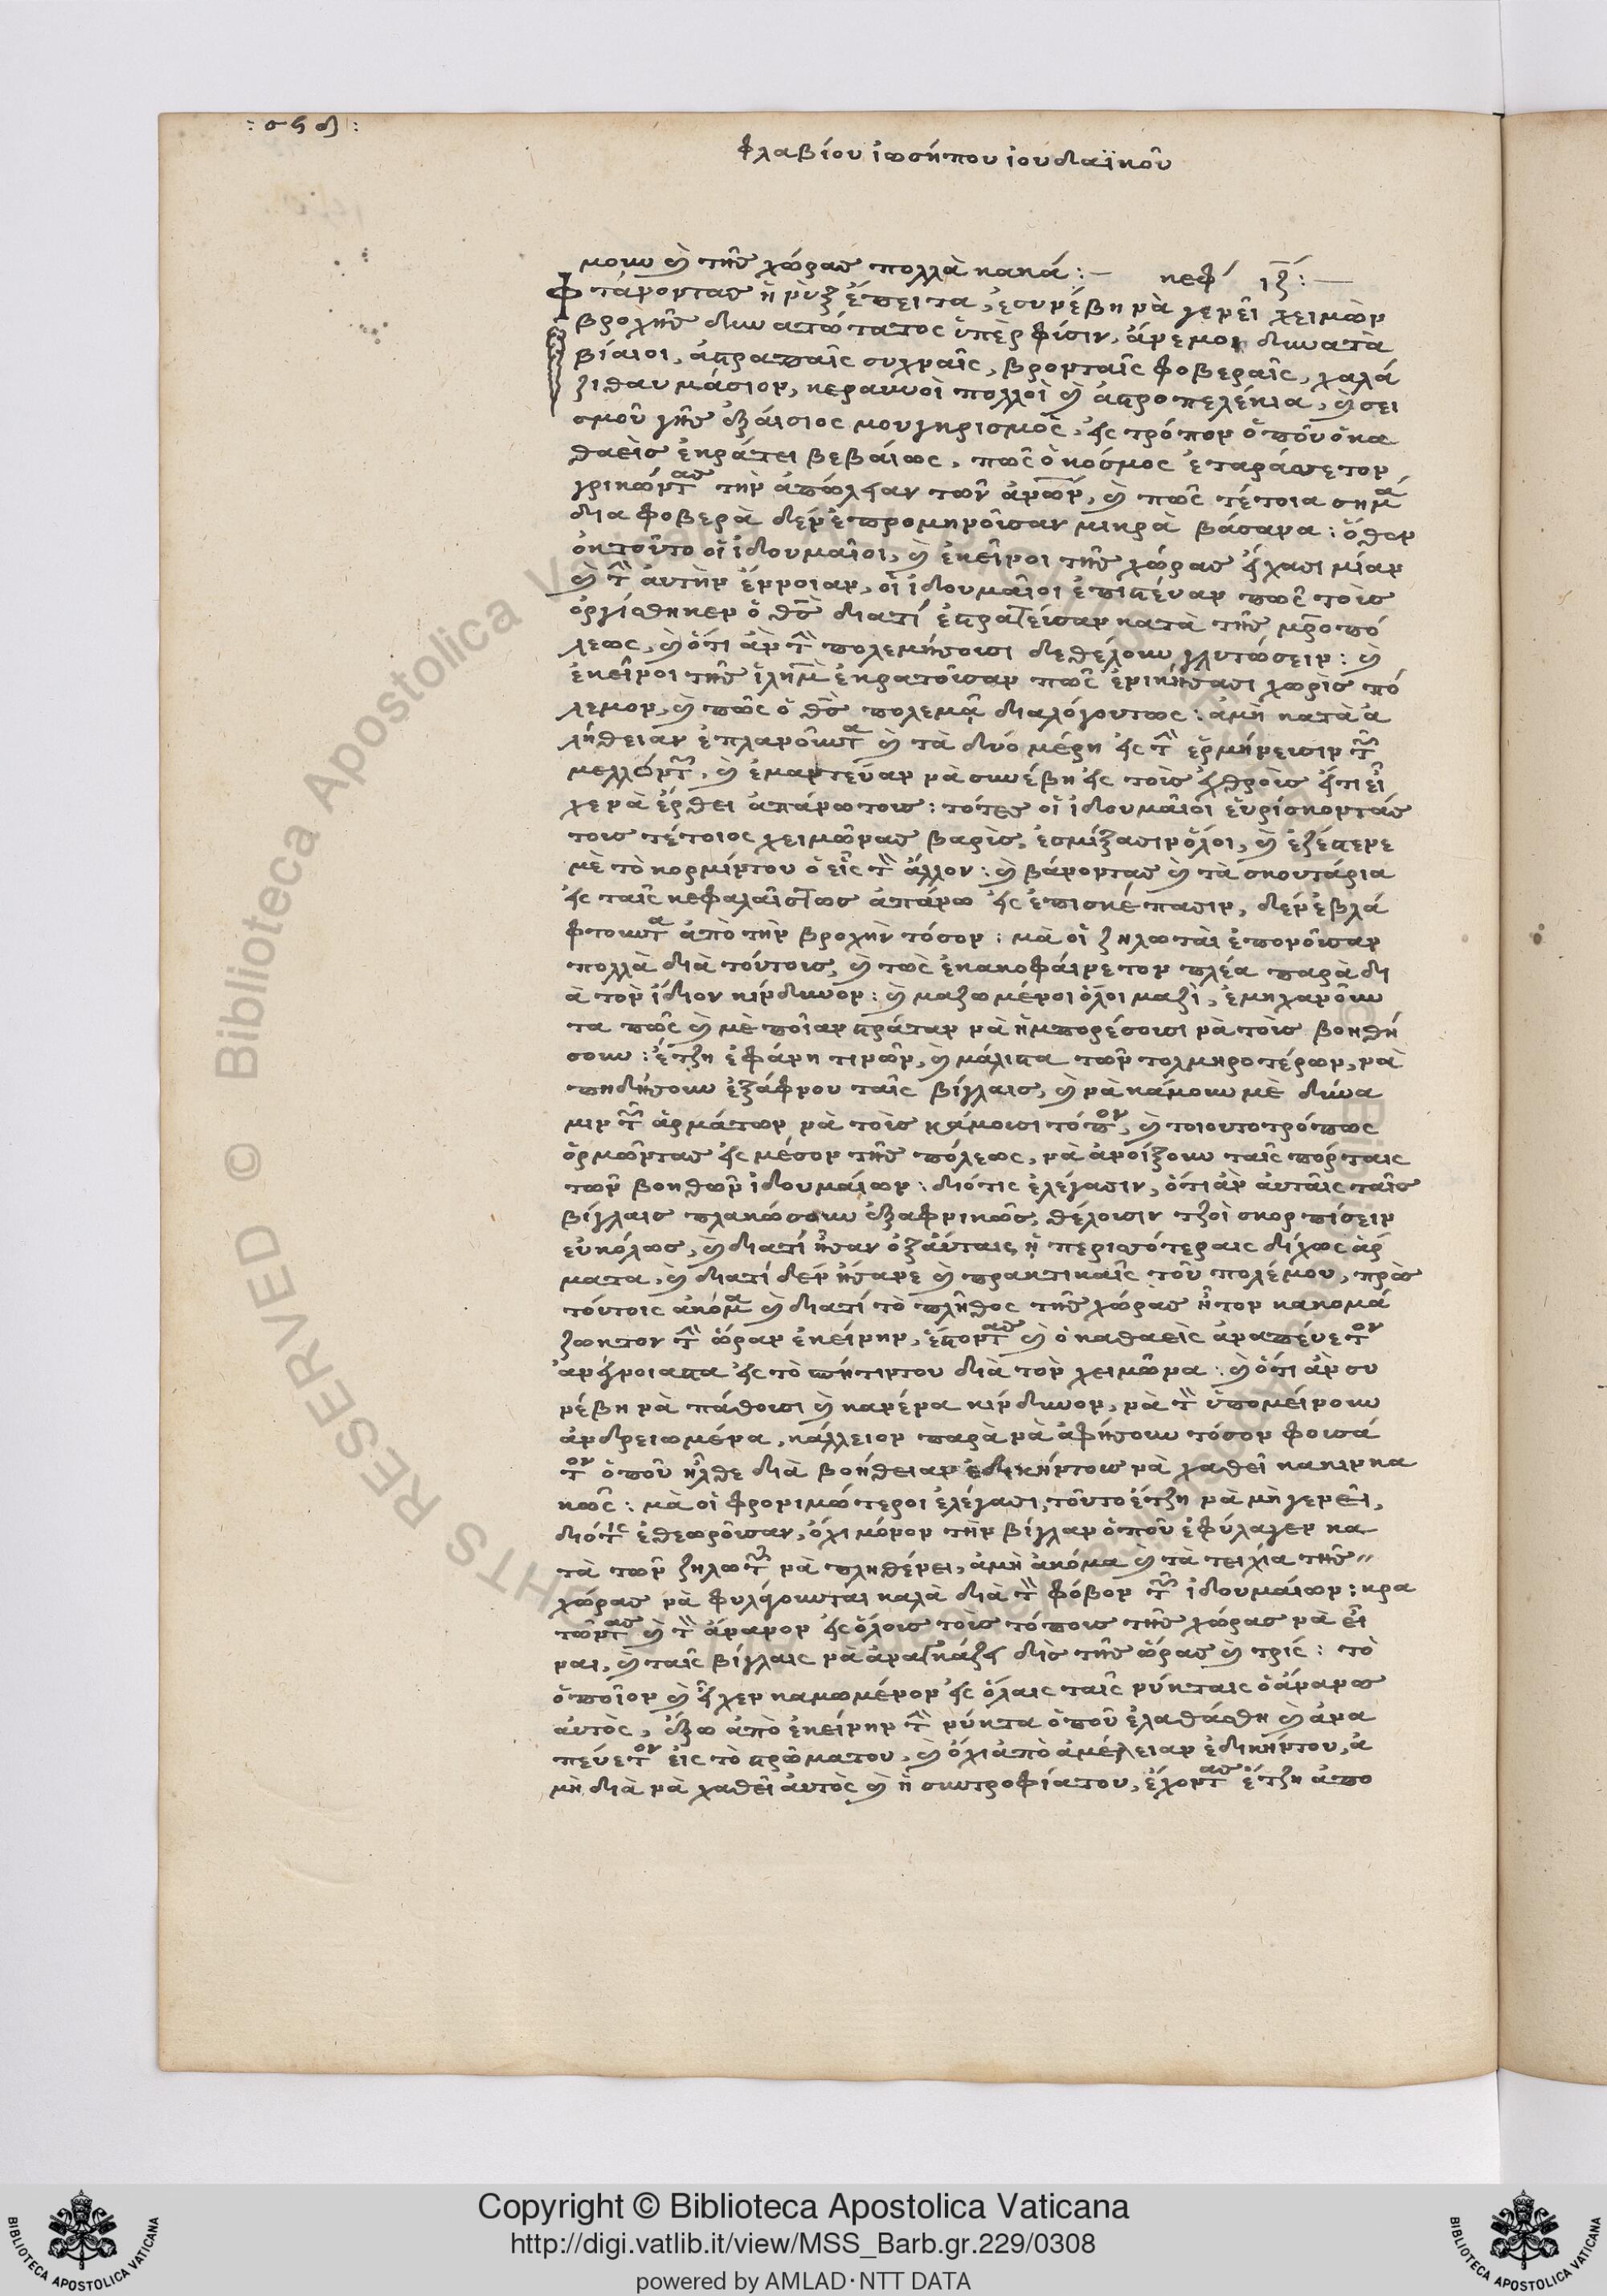 :σϟδ:
φλαβίου ἰωσήπου ἰουδαϊκοῦ
μουν καὶ τῆς χώρας πολλὰ κακά:— κεφ ιζ:—
Φτάνοντας ἡ νὺξ ἔπειτα, ἐσυνέβη νὰ γενεῖ χειμὼν
βροχῆς δυνατώτατος ὑπὲρ φύσιν, ἄνεμοι δυνατὰ
βίαιοι, ἀστραπαῖς συχναῖς, βρονταῖς φοβεραῖς, χαλά
ζι θαυμάσιον, κεραυνοὶ πολλοὶ καὶ ἀστροπελέκια, καὶ σει
σμοῦ γῆς ἐξαίσιος μουγκρισμὸς, εἰς τρόπον ὁποῦ ὁ κα
θαεὶς ἐκράτει βεβαίως, πῶς ὁ κόσμος ἐταράσσετον
τὴν ἀπώλειαν τῶν ἀνων, καὶ πῶς τέτοια σημά
δια φοβερὰ δὲν ἐπρομηνοῦσαν μικρὰ βάσανα: ὅθεν
ἐκτοῦτο οἱ ἰδουμαῖοι, καὶ ἐκεῖνοι τῆς χώρας εἴχασι μίαν
καὶ τὴν αὐτὴν ἔννοιαν, οἱ ἰδουμαῖοι ἐπιστέναν πῶς τοὺς
ὀργίσθηκεν ὁ θς διατί ἐστρατεύσαν κατὰ τῆς μροπό
λεως, καὶ ὅτι ἂν τὴν πολεμήσουσι δὲ θέλουν γλυτώσειν: καὶ
ἐκεῖνοι τῆς ἱλημ ἐκρατοῦσαν πῶς ἐνικήσασι χωρὶς πό
λεμον, καὶ πῶς ὁ θς πολεμᾷ διαλόγουντως: ἀμὴ κατὰ ἀ
λήθειαν ἐπλανοῦντα καὶ τὰ δύο μέρη εἰς τὴν ἑρμήνευσιν τῶν
μελλόντων, καὶ ἐμαντεύαν νὰ συνέβη εἰς τοὺς ἐχθροὺς ὅτι εἶ
χε νὰ ἔρθει ἀπάνωτους: τότες οἱ ἰδουμαῖοι εὑρίσκοντάς
τους τέτοιος χειμῶνας βαρὺς, ἐσμίξασιν ὅλοι, καὶ ἐζέστενε
μὲ τὸ κορμίντου ὁ εἷς τὸν ἄλλον: καὶ βάνοντας καὶ τὰ σκουτάρια
εἰς ταῖς κεφαλαῖς τως ἀπάνω εἰς ἐπισκέπασιν, δὲν ἐβλά
φτουντα ἀπὸ τὴν βροχὴν τόσον: μὰ οἱ ζηλωταὶ ἐπονοῦσαν
πολλὰ διὰ τούτους, καὶ τὼς ἐκακοφαίνετον πλέα παρὰ δι
ὰ τὸν ἴδιον κίνδυνον: καὶ μαζωμένοι ὅλοι μαζὶ, ἐμηχανοῦν
τα πῶς καὶ μὲ ποῖαν στράταν νὰ ἠμπορέσουσι νὰ τοὺς βοηθή
σουν: ἔτζη ἐφάνη τινῶν, καὶ μάλιστα τῶν τολμηροτέρων, νὰ
πηδήσουν ἐξάφνου ταῖς βίγλαις, καὶ νὰ κάμουν μὲ δύνα
μιν τῶν ἀρμάτων νὰ τοὺς κάμουσι τόπον, καὶ τοιουτοτρόπως
ὁρμῶντας εἰς μέσον τῆς πόλεως, νὰ ἀνοίξουν ταῖς πόρταις
τῶν βοηθῶν ἰδουμαίων: διότις ἐλέγασιν, ὅτι ἂν αὐταῖς ταῖς
βίγλαις πλακώσουν ἐξαφνικῶς, θέλουσιν τζοὶ σκορπίσειν
εὐκόλως, καὶ διατί ἦσαν ἐξαὐταις ᾑ περισσότεραις δίχως ἄρ
ματα, καὶ διατί δὲν ἦσανε καὶ πρακτικαῖς τοῦ πολέμου, πρὸς
τούτοις ἀκόμα καὶ διατί τὸ πλῆθος τῆς χώρας ἦτον κακομά
ζωκτον τὴν ὥραν ἐκείνην, ἔστοντας καὶ ὁ καθαεὶς ἀναπεύετον
ἀνέγνοιαστα εἰς τὸ σπήτιντου διὰ τὸν χειμῶνα: καὶ ὅτι ἂν συ
νέβη νὰ πάθουσι καὶ κανένα κίνδυνον, νὰ τὸν ὑπομείνουν
ἀνδρειωμένα, κάλλειον παρὰ νὰ ἀφήσουν τόσον φουσά
τον ὁποῦ ἦλθε διὰ βοήθειαν ἐδικήντους νὰ χαθεῖ κακινκα
κῶς: μὰ οἱ φρονιμώτεροι ἐλέγασι, τοῦτο ἔτζη νὰ μὴ γενεῖ,
διότις ἐθεωροῦσαν, ὄχι μόνον τὴν βίγλαν ὁποῦ ἐφύλαγεν κα
τὰ τῶν ζηλωτῶν νὰ πληθένει, ἀμὴ ἀκόμα καὶ τὰ τειχία τῆς
χώρας νὰ φυλάγουνται καλὰ διὰ τὸν φόβον τῶν ἰδουμαίων: κρα
τῶντας καὶ τὸν ἄνανον εἰς ὅλους τοὺς τόπους τῆς χώρας νὰ εἶ
ναι, καὶ ταῖς βίγλαις νὰ δὶς τῆς ὥρας καὶ τρίς: τὸ
ὁποῖον καὶ εἶχεν καμωμένον εἰς ὅλαις ταῖς νύκταις ὁ ἄνανος
αὐτὸς, ἔξω ἀπὸ ἐκείνην τὴν νύκτα ὁποῦ ἐλαθάσθη καὶ ἀνα
πεύετον εἰς τὸ στρῶματου, καὶ ὄχι ἀπὸ ἀμέλειαν ἐδικήντου, ἀ
μὴ διὰ νὰ χαθεῖ αὐτὸς καὶ ἡ συντροφίατου, ἔχοντας ἔτζη ἀπο
Copyright © Biblioteca Apostolica Vaticana
http://digi.vatlib.it/view/MSS_Barb.gr.229/0308
powered by AMLAD·NTT DATA